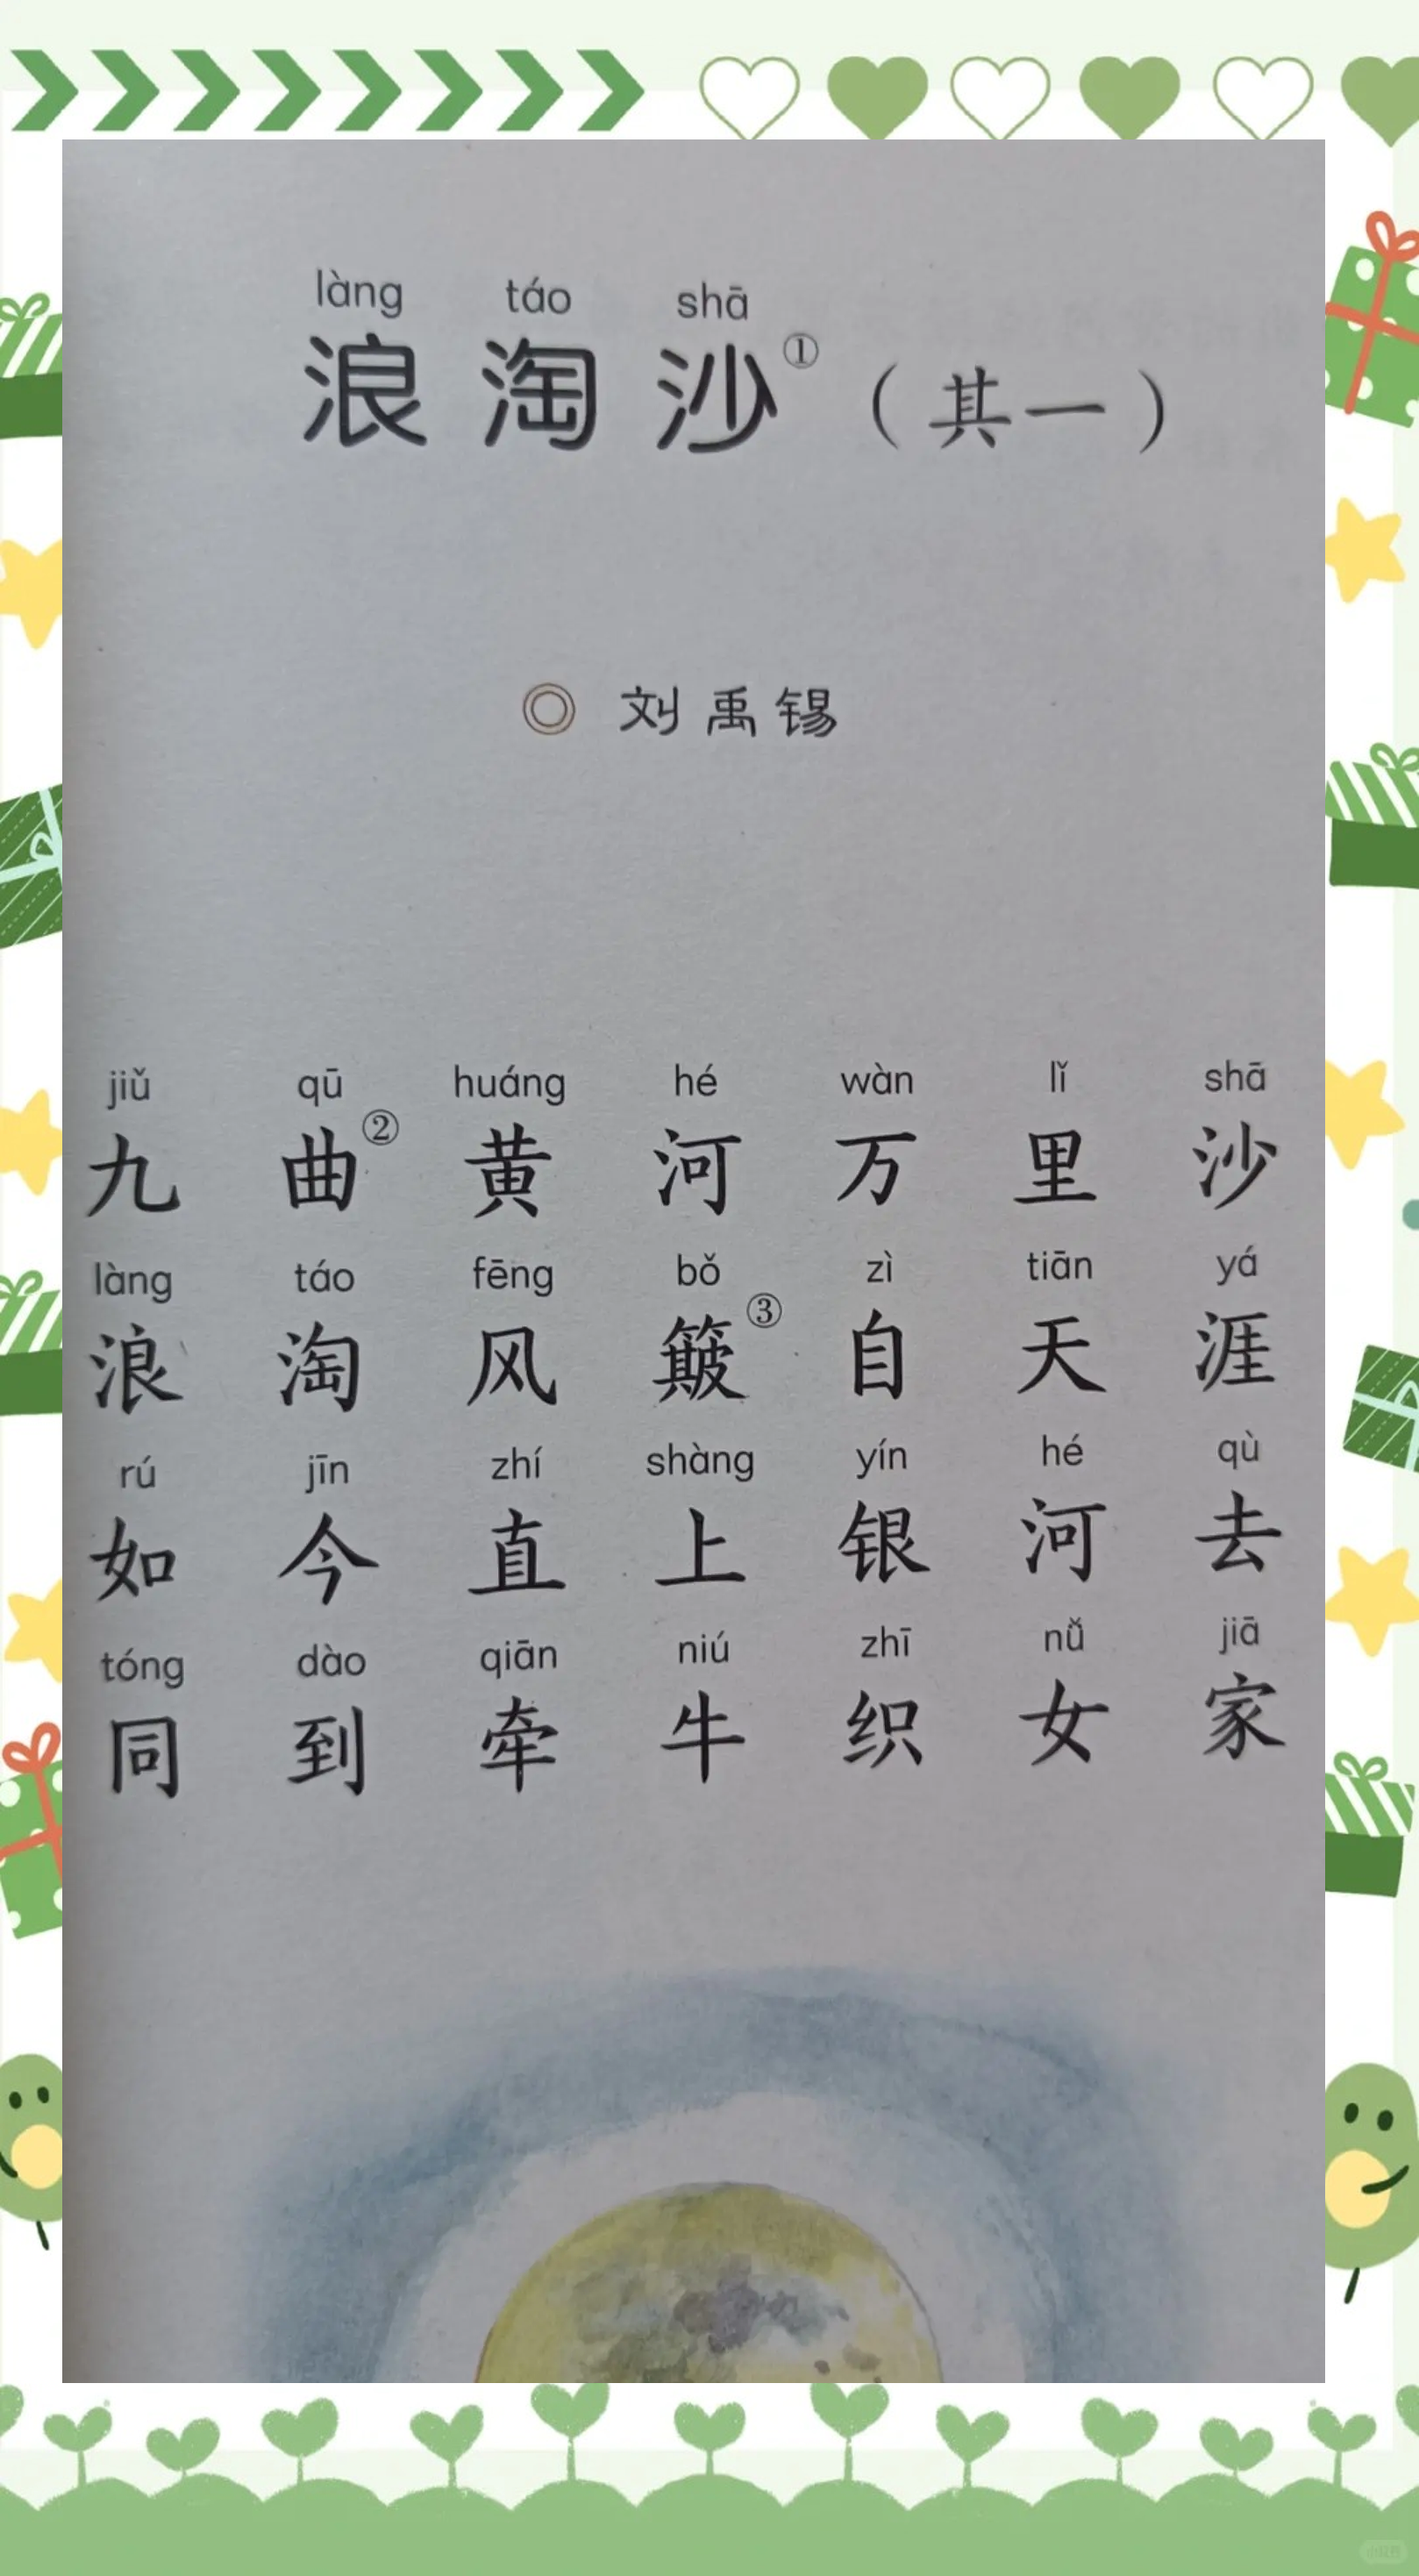 làng táo shā
浪淘沙①（其一）
◎ 刘禹锡
jiǔ qū huáng hé wàn lǐ shā
九曲②黄河万里沙
làng táo fēng bǒ zì tiān yá
浪淘风簸③自天涯
rú jīn zhí shàng yín hé qù
如今直上银河去
tóng dào qiān niú zhī nǚ jiā
同到牵牛织女家